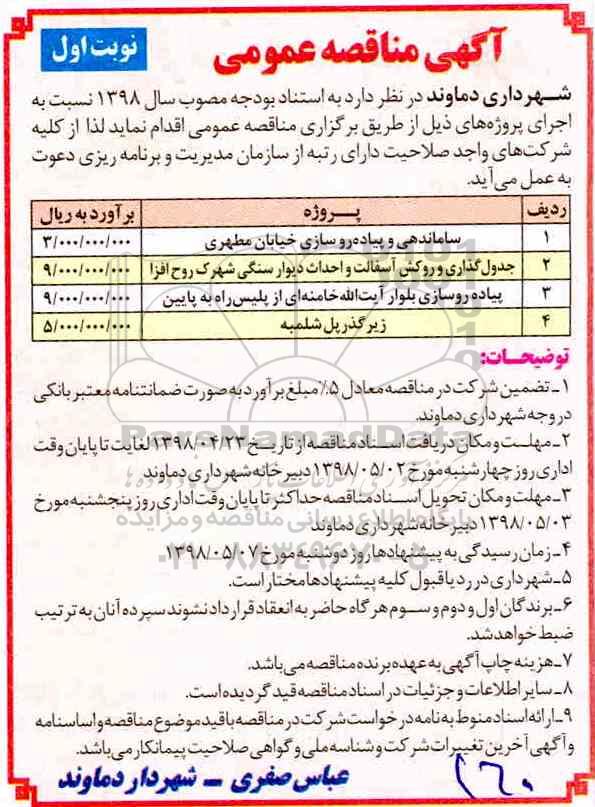 آگهی مناقصه عمومی
نوبت اول
شهرداری دماوند در نظر دارد به استناد بودجه مصوب سال ۱۳۹۸ نسبت به
اجرای پروژه‌های ذیل از طریق برگزاری مناقصه عمومی اقدام نماید لذا از کلیه
شرکت‌های واجد صلاحیت دارای رتبه از سازمان مدیریت و برنامه ریزی دعوت
به عمل می‌آید.
ردیف پـــروژه برآورد به ریال
۱ ساماندهی و پیاده‌رو سازی خیابان مطهری ۳/۰۰۰/۰۰۰/۰۰۰
۲ جدول گذاری و روکش آسفالت و احداث دیوار سنگی شهرک روح افزا ۹/۰۰۰/۰۰۰/۰۰۰
۳ پیاده روسازی بلوار آیت‌الله خامنه‌ای از پلیس راه به پایین ۹/۰۰۰/۰۰۰/۰۰۰
۴ زیرگذر پل شلمبه ۵/۰۰۰/۰۰۰/۰۰۰
توضیحات:
۱ـ تضمین شرکت در مناقصه معادل ۵٪ مبلغ برآورد به صورت ضمانتنامه معتبر بانکی
در وجه شهرداری دماوند.
۲ـ مهلت و مکان دریافت اسناد مناقصه از تاریخ ۱۳۹۸/۰۴/۲۳ لغایت تا پایان وقت
اداری روز چهارشنبه مورخ ۱۳۹۸/۰۵/۰۲ دبیرخانه شهرداری دماوند
۳ـ مهلت و مکان تحویل اسناد مناقصه حداکثر تا پایان وقت اداری روز پنجشنبه مورخ
۱۳۹۸/۰۵/۰۳ دبیرخانه شهرداری دماوند
۴ـ زمان رسیدگی به پیشنهادها روز دوشنبه مورخ ۱۳۹۸/۰۵/۰۷
۵ـ شهرداری در رد یا قبول کلیه پیشنهادها مختار است.
۶ـ برندگان اول و دوم و سوم هرگاه حاضر به انعقاد قرارداد نشوند سپرده آنان به ترتیب
ضبط خواهد شد.
۷ـ هزینه چاپ آگهی به عهده برنده مناقصه می‌باشد.
۸ـ سایر اطلاعات و جزئیات در اسناد مناقصه قید گردیده است.
۹ـ ارائه اسناد منوط به نامه درخواست شرکت در مناقصه با قید موضوع مناقصه و اساسنامه
و آگهی آخرین تغییرات شرکت و شناسه ملی و گواهی صلاحیت پیمانکار می‌باشد.
عباس صفری ـ شهردار دماوند
ParsNamadData
پایگاه اطلاع رسانی مناقصه و مزایده
۰۲۱-۸۸۳۴۹۶۷۰-۵